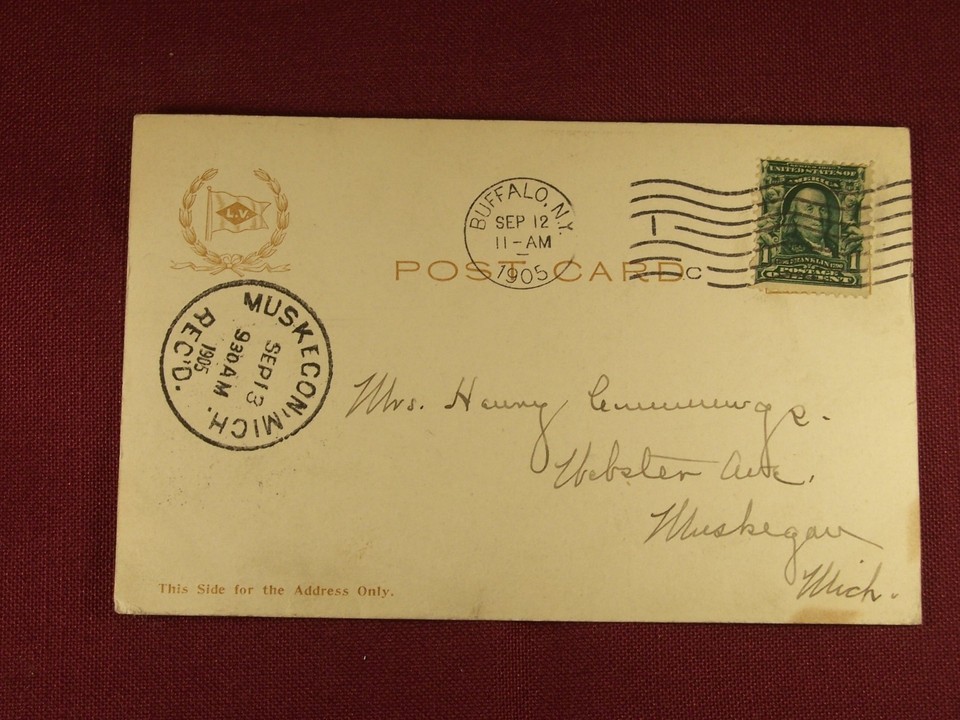 L.V.
BUFFALO, N.Y.
SEP 12
11-AM
1905
1
C
UNITED STATES OF
AMERICA
FRANKLIN
POSTAGE
1 ONE CENT 1
POST CARD
MUSKEGON, MICH.
SEP 13
930AM
1905
REC'D.
Mrs. Henry
Webster Ave.
Muskegon
Mich.
This Side for the Address Only.